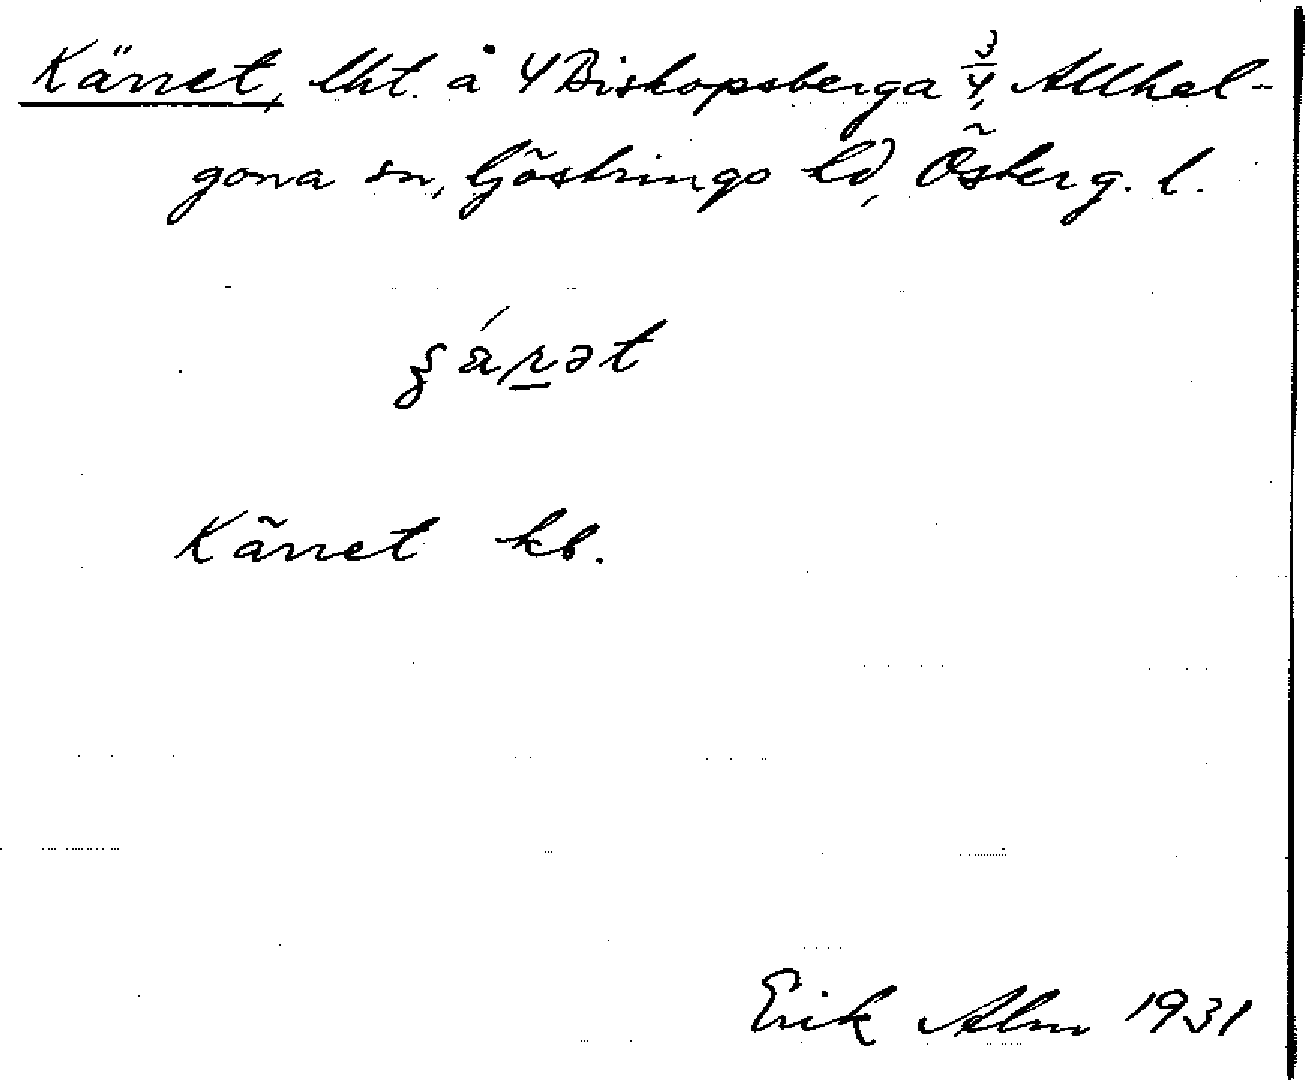 Kärret, lht. å 4 Biskopsberga 3/4, Allhel-
gona sn, Göstrings hd, Österg. l.
Kärret kb.
Erik Alm 1931